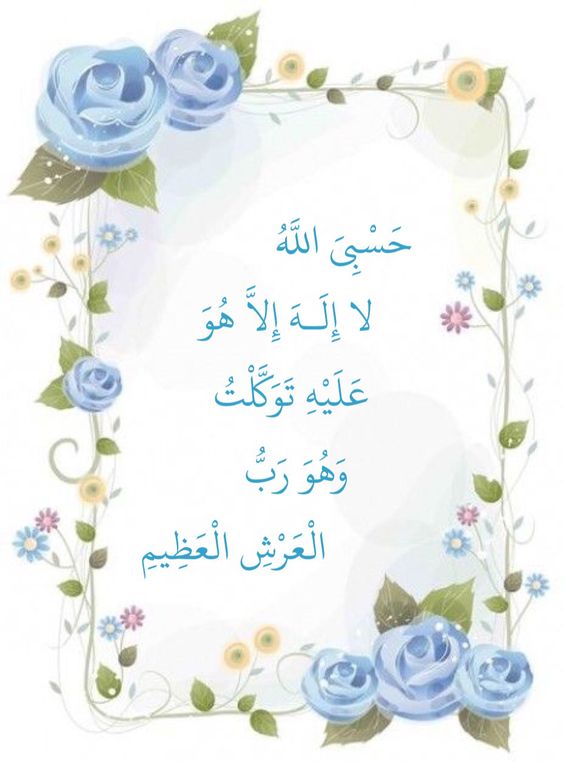 حَسْبِيَ اللَّهُ
لا إِلَـهَ إِلاَّ هُوَ
عَلَيْهِ تَوَكَّلْتُ
وَهُوَ رَبُّ
الْعَرْشِ الْعَظِيمِ